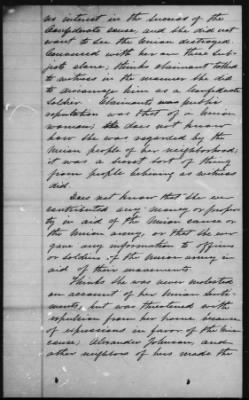 as interest in the success of the
Confederate cause, and she did not
want to see the Union destroyed.
Conversed with her on these sub-
jects alone; thinks claimant talked
to witness in the manner she did
to encourage him as a Confederate
soldier. Claimants public
reputation was that of a Union
woman; She does not know
how she was regarded by the
Union people of her neighborhood;
it was a sort of thing
from people believing as witness
did.
Does not know that she ever
contributed any money or proper-
ty in aid of the Union cause or
the Union army, or that she ever
gave any information to officers
or soldiers of the Union army in
aid of their movements.
Thinks she was never molested
on account of her Union senti-
ments, but was threatened with
expulsion from her home because
of expressions in favor of the Union
cause; Alexander Johnson, and
other neighbors of hers made the